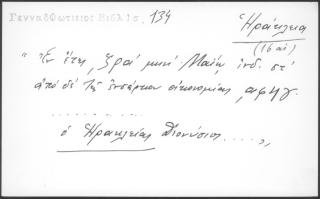 Γενναδ Φωτιτιοι Βιβλ ις. 134
Ἡράκλεια
(16 αἰ)
" Ἐν ἔτει, ζρα' μηνί Μαΐῳ, ἰνδ. στ'
ἀπό δέ τῆς ἐνσάρκου οἰκονομίας, αφϟγ.
. . . . . . . . . .
ὁ Ἡρακλείας Διονύσιος . . . . , ,